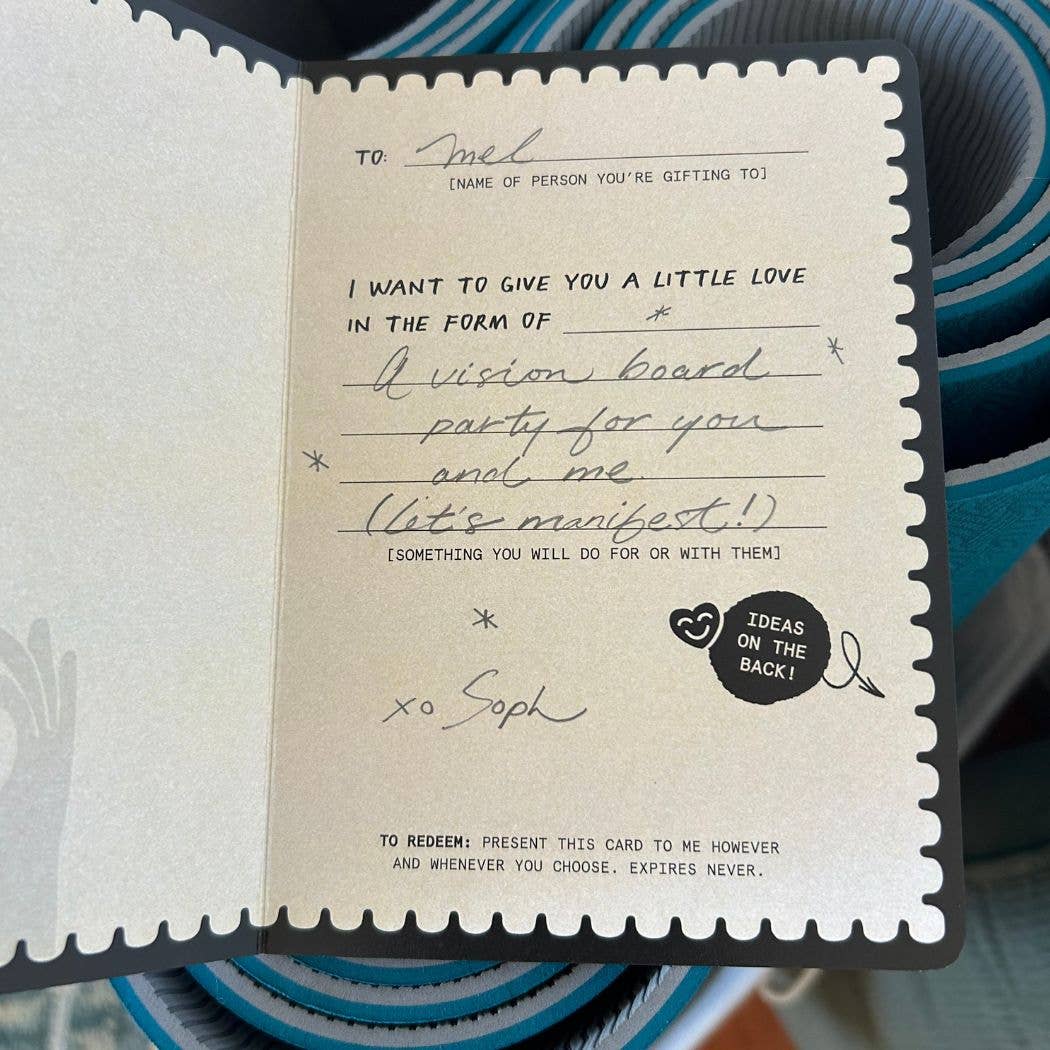 TO: Mel
[NAME OF PERSON YOU'RE GIFTING TO]
I WANT TO GIVE YOU A LITTLE LOVE
IN THE FORM OF *
A vision board *
party for you
* and me.
(let's manifest!)
[SOMETHING YOU WILL DO FOR OR WITH THEM]
*
IDEAS
ON THE
BACK!
xo Soph
TO REDEEM: PRESENT THIS CARD TO ME HOWEVER
AND WHENEVER YOU CHOOSE. EXPIRES NEVER.